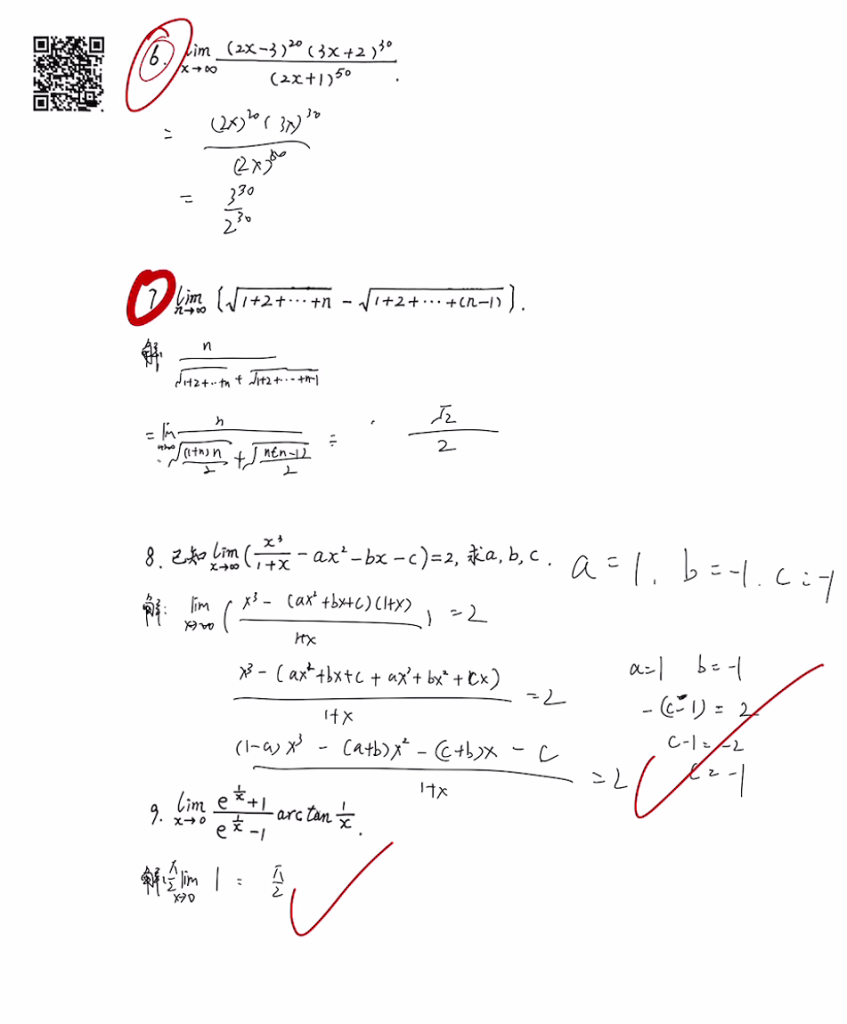 6. lim x→∞ (2x-3)^20 (3x+2)^30 / (2x+1)^50 .
= (2x)^20 (3x)^30 / (2x)^50
= 3^30 / 2^30
7 lim n→∞ [√(1+2+⋯+n) - √(1+2+⋯+(n-1))].
解 n / (√(1+2+⋯+n) + √(1+2+⋯+n-1))
= lim n→∞ n / (√((1+n)n/2) + √(n(n-1)/2)) = √2 / 2
8. 已知 lim x→∞ (x^3/(1+x) - ax^2 - bx - c) = 2, 求a, b, c. a = 1. b = -1. c = -1
解: lim x→∞ ( (x^3 - (ax^2+bx+c)(1+x)) / (1+x) ) = 2
(x^3 - (ax^2+bx+c+ax^3+bx^2+cx)) / (1+x) = 2
a=1 b=-1
-(c-1) = 2
((1-a)x^3 - (a+b)x^2 - (c+b)x - c) / (1+x) = 2
c-1 = -2
c = -1
9. lim x→0 (e^(1/x)+1)/(e^(1/x)-1) arctan 1/x.
解: π/2 lim x→0 1 = π/2